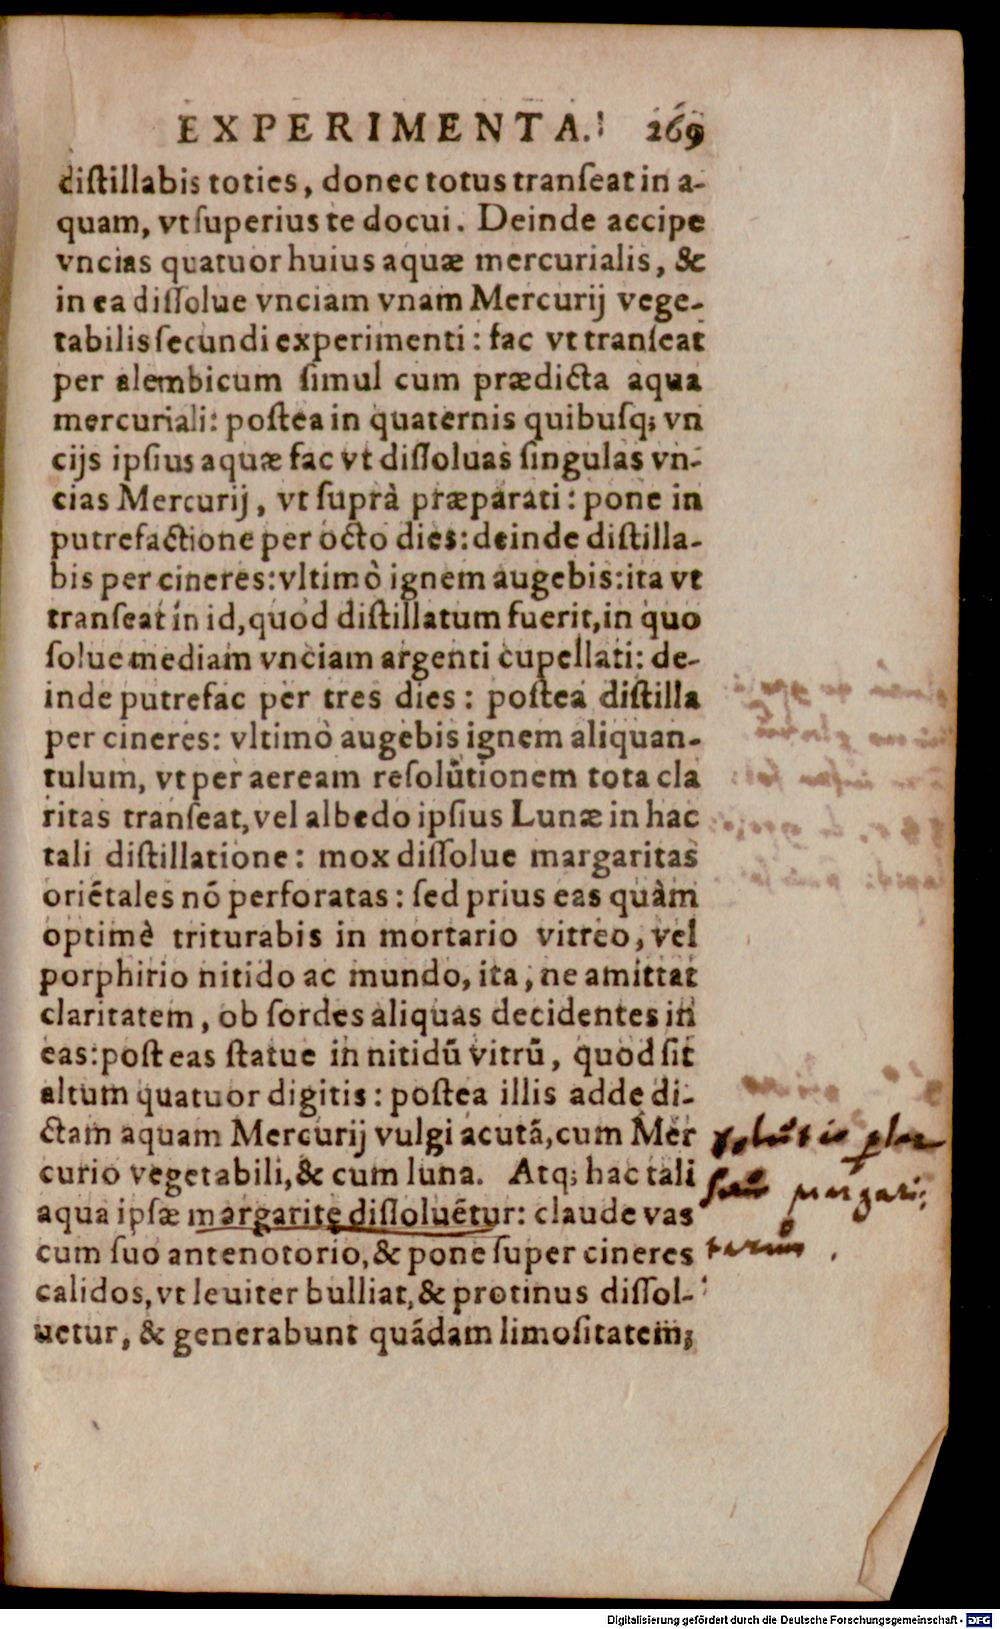 EXPERIMENTA. 269
distillabis toties, donec totus transeat in a-
quam, vt superius te docui. Deinde accipe
vncias quatuor huius aquæ mercurialis, &
in ea dissolue vnciam vnam Mercurij vege-
tabilis secundi experimenti: fac vt transeat
per alembicum simul cum prædicta aqua
mercuriali: postea in quaternis quibusq; vn
cijs ipsius aquæ fac vt dissoluas singulas vn-
cias Mercurij, vt suprà præparati: pone in
putrefactione per octo dies: deinde distilla-
bis per cineres: vltimò ignem augebis: ita vt
transeat in id, quod distillatum fuerit, in quo
solue mediam vnciam argenti cupellati: de-
inde putrefac per tres dies: postea distilla
per cineres: vltimò augebis ignem aliquan-
tulum, vt per aeream resolutionem tota cla
ritas transeat, vel albedo ipsius Lunæ in hac
tali distillatione: mox dissolue margaritas
oriētales nō perforatas: sed prius eas quàm
optimè triturabis in mortario vitreo, vel
porphirio nitido ac mundo, ita, ne amittat
claritatem, ob sordes aliquas decidentes in
eas: post eas statue in nitidū vitrū, quod sit
altum quatuor digitis: postea illis adde di-
ctam aquam Mercurij vulgi acutā, cum Mer
curio vegetabili, & cum luna. Atq; hac tali
aqua ipsæ margaritę dissoluētur: claude vas
cum suo antenotorio, & pone super cineres
calidos, vt leuiter bulliat, & protinus dissol-
uetur, & generabunt quādam limositatem;
margari:
tarum.
Digitalisierung gefördert durch die Deutsche Forschungsgemeinschaft - DFG